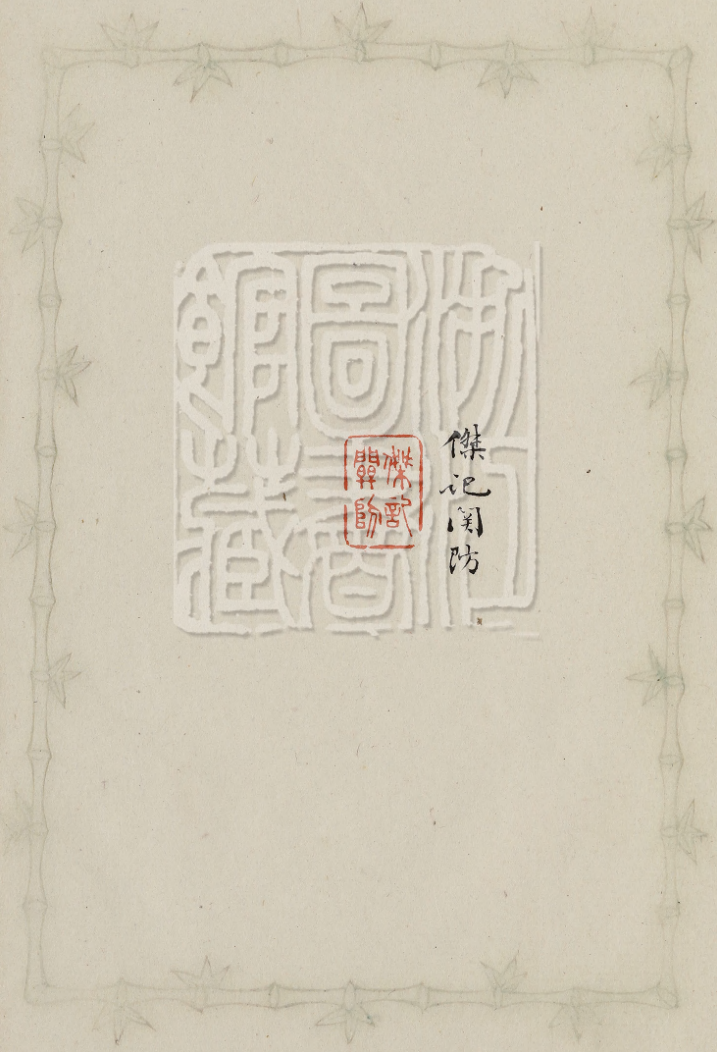 浙江
圖書
館藏
傑記関防
傑記
關防